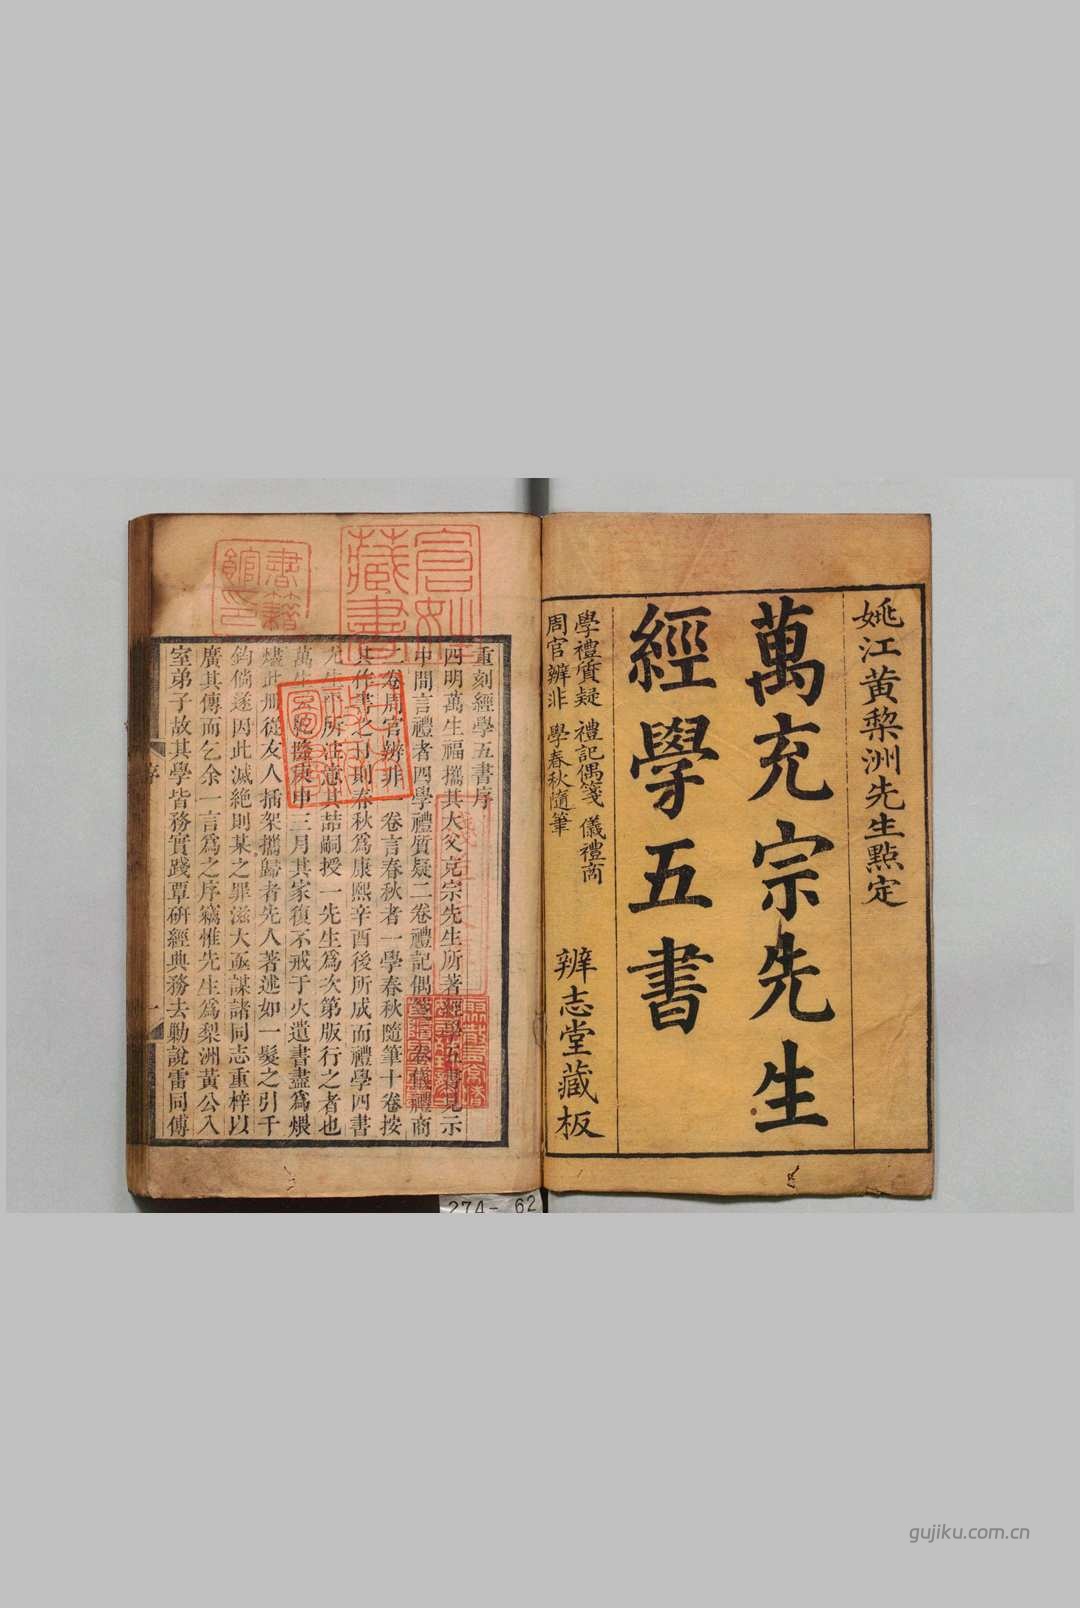 姚江黃棃洲先生點定
萬充宗先生
經學五書
學禮質疑 禮記偶箋 儀禮商
周官辨非 學春秋隨筆
辨志堂藏板
重刻經學五書序
四明萬生福攜其大父充宗先生所著經學五書見示
中間言禮者四學禮質疑二卷禮記偶箋 卷儀禮商
二卷周官辨非一卷言春秋者一學春秋隨筆十卷按
其作書之 則春秋為康熙辛酉後所成而禮學四書
尤生平所注意其喆嗣授一先生為次第版行之者也
萬 乾隆庚申三月其家復不戒于火遺書盡為煨
燼此册從友人插架攜歸者先人著述如一髮之引千
鈞倘遂因此滅絕則某之罪滋大亟謀諸同志重梓以
廣其傳而乞余一言為之序竊惟先生為梨洲黃公入
室弟子故其學皆務實踐覃研經典務去勦說雷同傅
序
一
藏書
書籍館印
274- 62
gujiku.com.cn